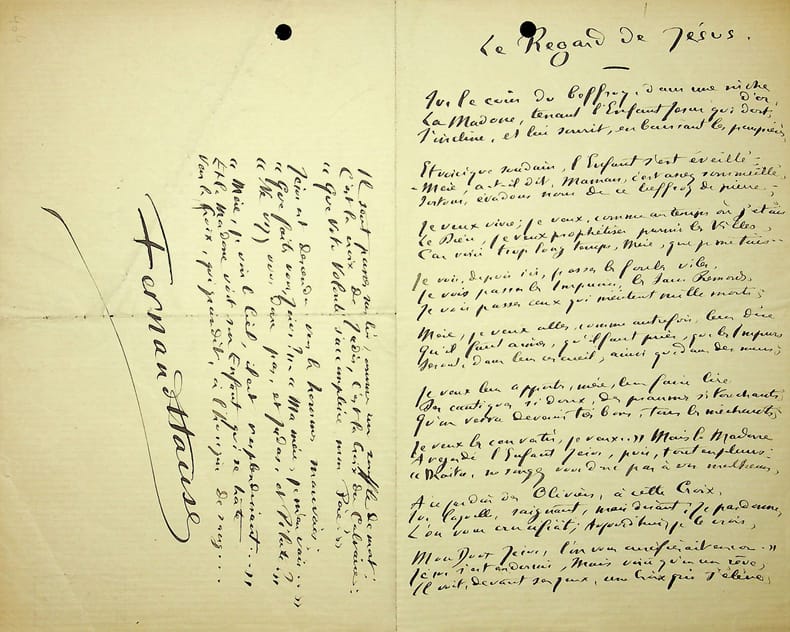 Le Regard de Jésus.
Sur le coin du beffroy, dans une niche d'or,
La Madone, tenant l'Enfant Jésus qui dort,
S'incline, et lui sourit, en baissant les paupières,
Et voici que soudain, l'Enfant s'est éveillé
- Mère, a-t-il dit, Maman, c'est assez sommeillé,
Sortons, évadons nous de ce beffroy de pierre;
Je veux vivre; je veux, comme au temps où j'étais
Le Dieu, je veux prophétiser parmi les Villes,
Car voici trop long temps, Mère, que je me tais
Je vois, depuis ici, passer les foules viles,
Je vois passer les Impurs, les Sans Remords,
Je vois passer ceux qui méritent mille morts;
Mère, je veux aller, comme autrefois, leur dire
Qu'il faut aimer, qu'il faut prier, que les Impurs
Seront, dans leur cercueil, ainsi qu'dans des murs;
Je veux leur apporter, mère, leur faire lire
Des cantiques si doux, des psaumes si touchants,
Qu'on verra devenir très bons, tous les méchants,
Je veux les convertir, je veux.. » Mais la Madone
A regardé l'Enfant Jésus, puis, tout en pleurs:
« Maître, ne songez vous donc pas à vos malheurs,
Au jardin des Oliviers, à cette Croix,
Sur laquelle, saignant, mais disant: Je pardonne,
L'on vous crucifiât; Aujourd'hui, je le crois,
Mon Doux Jésus, l'on vous crucifierait encor.. »
Jésus s'est endormi, Mais voici qu'en un rêve,
Il voit, devant ses yeux, une Croix qui s'élève,
Il sent passer sur lui comme un souffle de mort:
C'est la croix de Jadis, c'est la Croix du Calvaire:
« Que votre Volonté s'accomplisse mon Père »
Jésus est descendu vers les hommes mauvais:
« Que faites vous, Jésus, » « Ma mère, je m'en vais.. »
« N'y
« Mère, j'ai vu le Ciel, il est resplendissant.. »
Et la Madone voit son Enfant qui se hâte
Vers la Croix, qui grandit, à l'horizon de sang...
Fernand Hauser